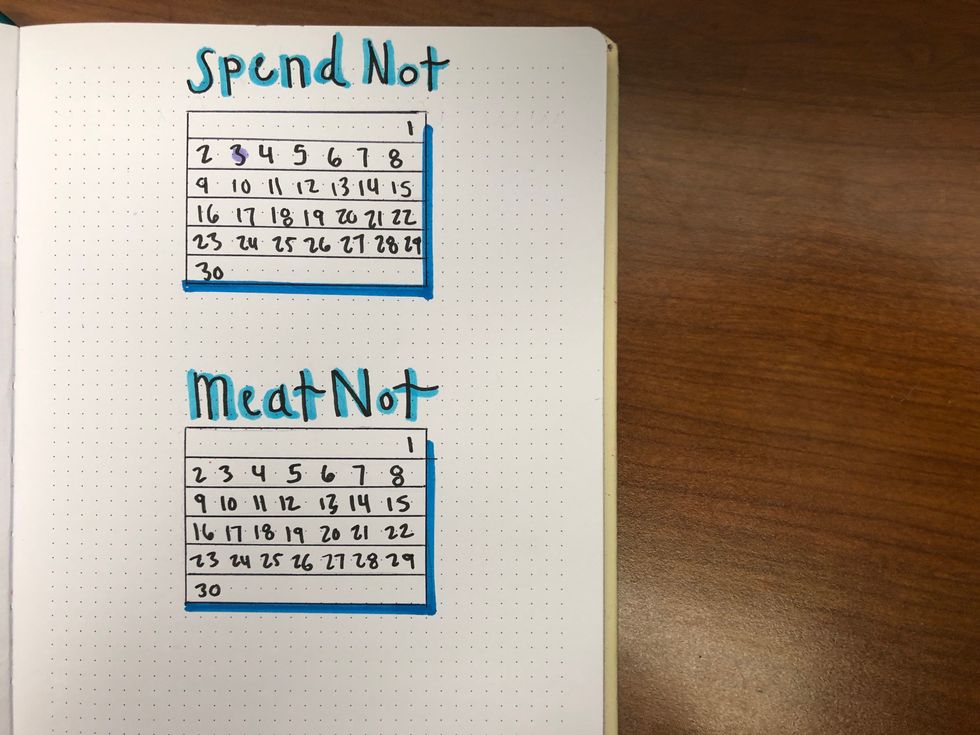 Spend Not
1
2 3 4 5 6 7 8
9 10 11 12 13 14 15
16 17 18 19 20 21 22
23 24 25 26 27 28 29
30
Meat Not
1
2 3 4 5 6 7 8
9 10 11 12 13 14 15
16 17 18 19 20 21 22
23 24 25 26 27 28 29
30